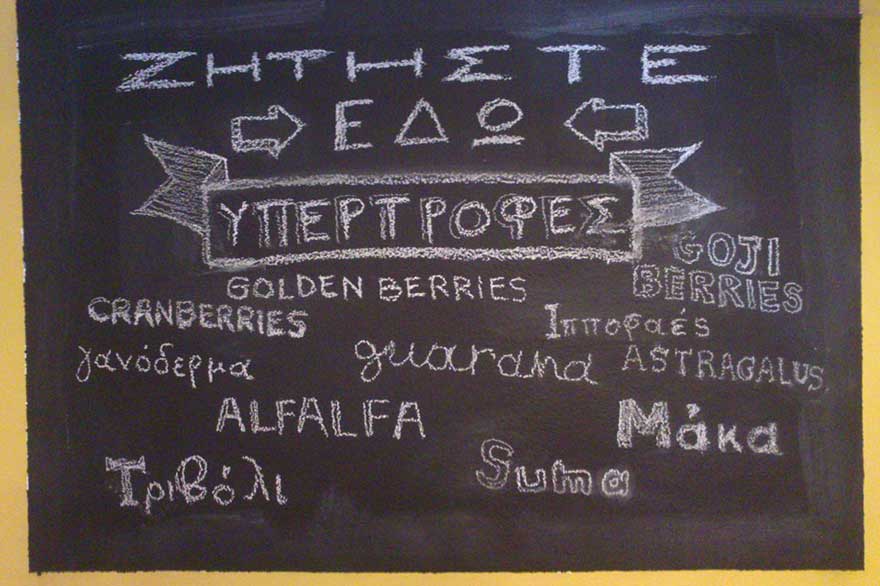 ΖΗΤΗΣΤΕ
ΕΔΩ
ΥΠΕΡΤΡΟΦΕΣ
GOJI
BERRIES
GOLDEN BERRIES
CRANBERRIES
Ιπποφαές
γανόδερμα
guarana
ASTRAGALUS
ALFALFA
Μάκα
Τριβόλι
Suma